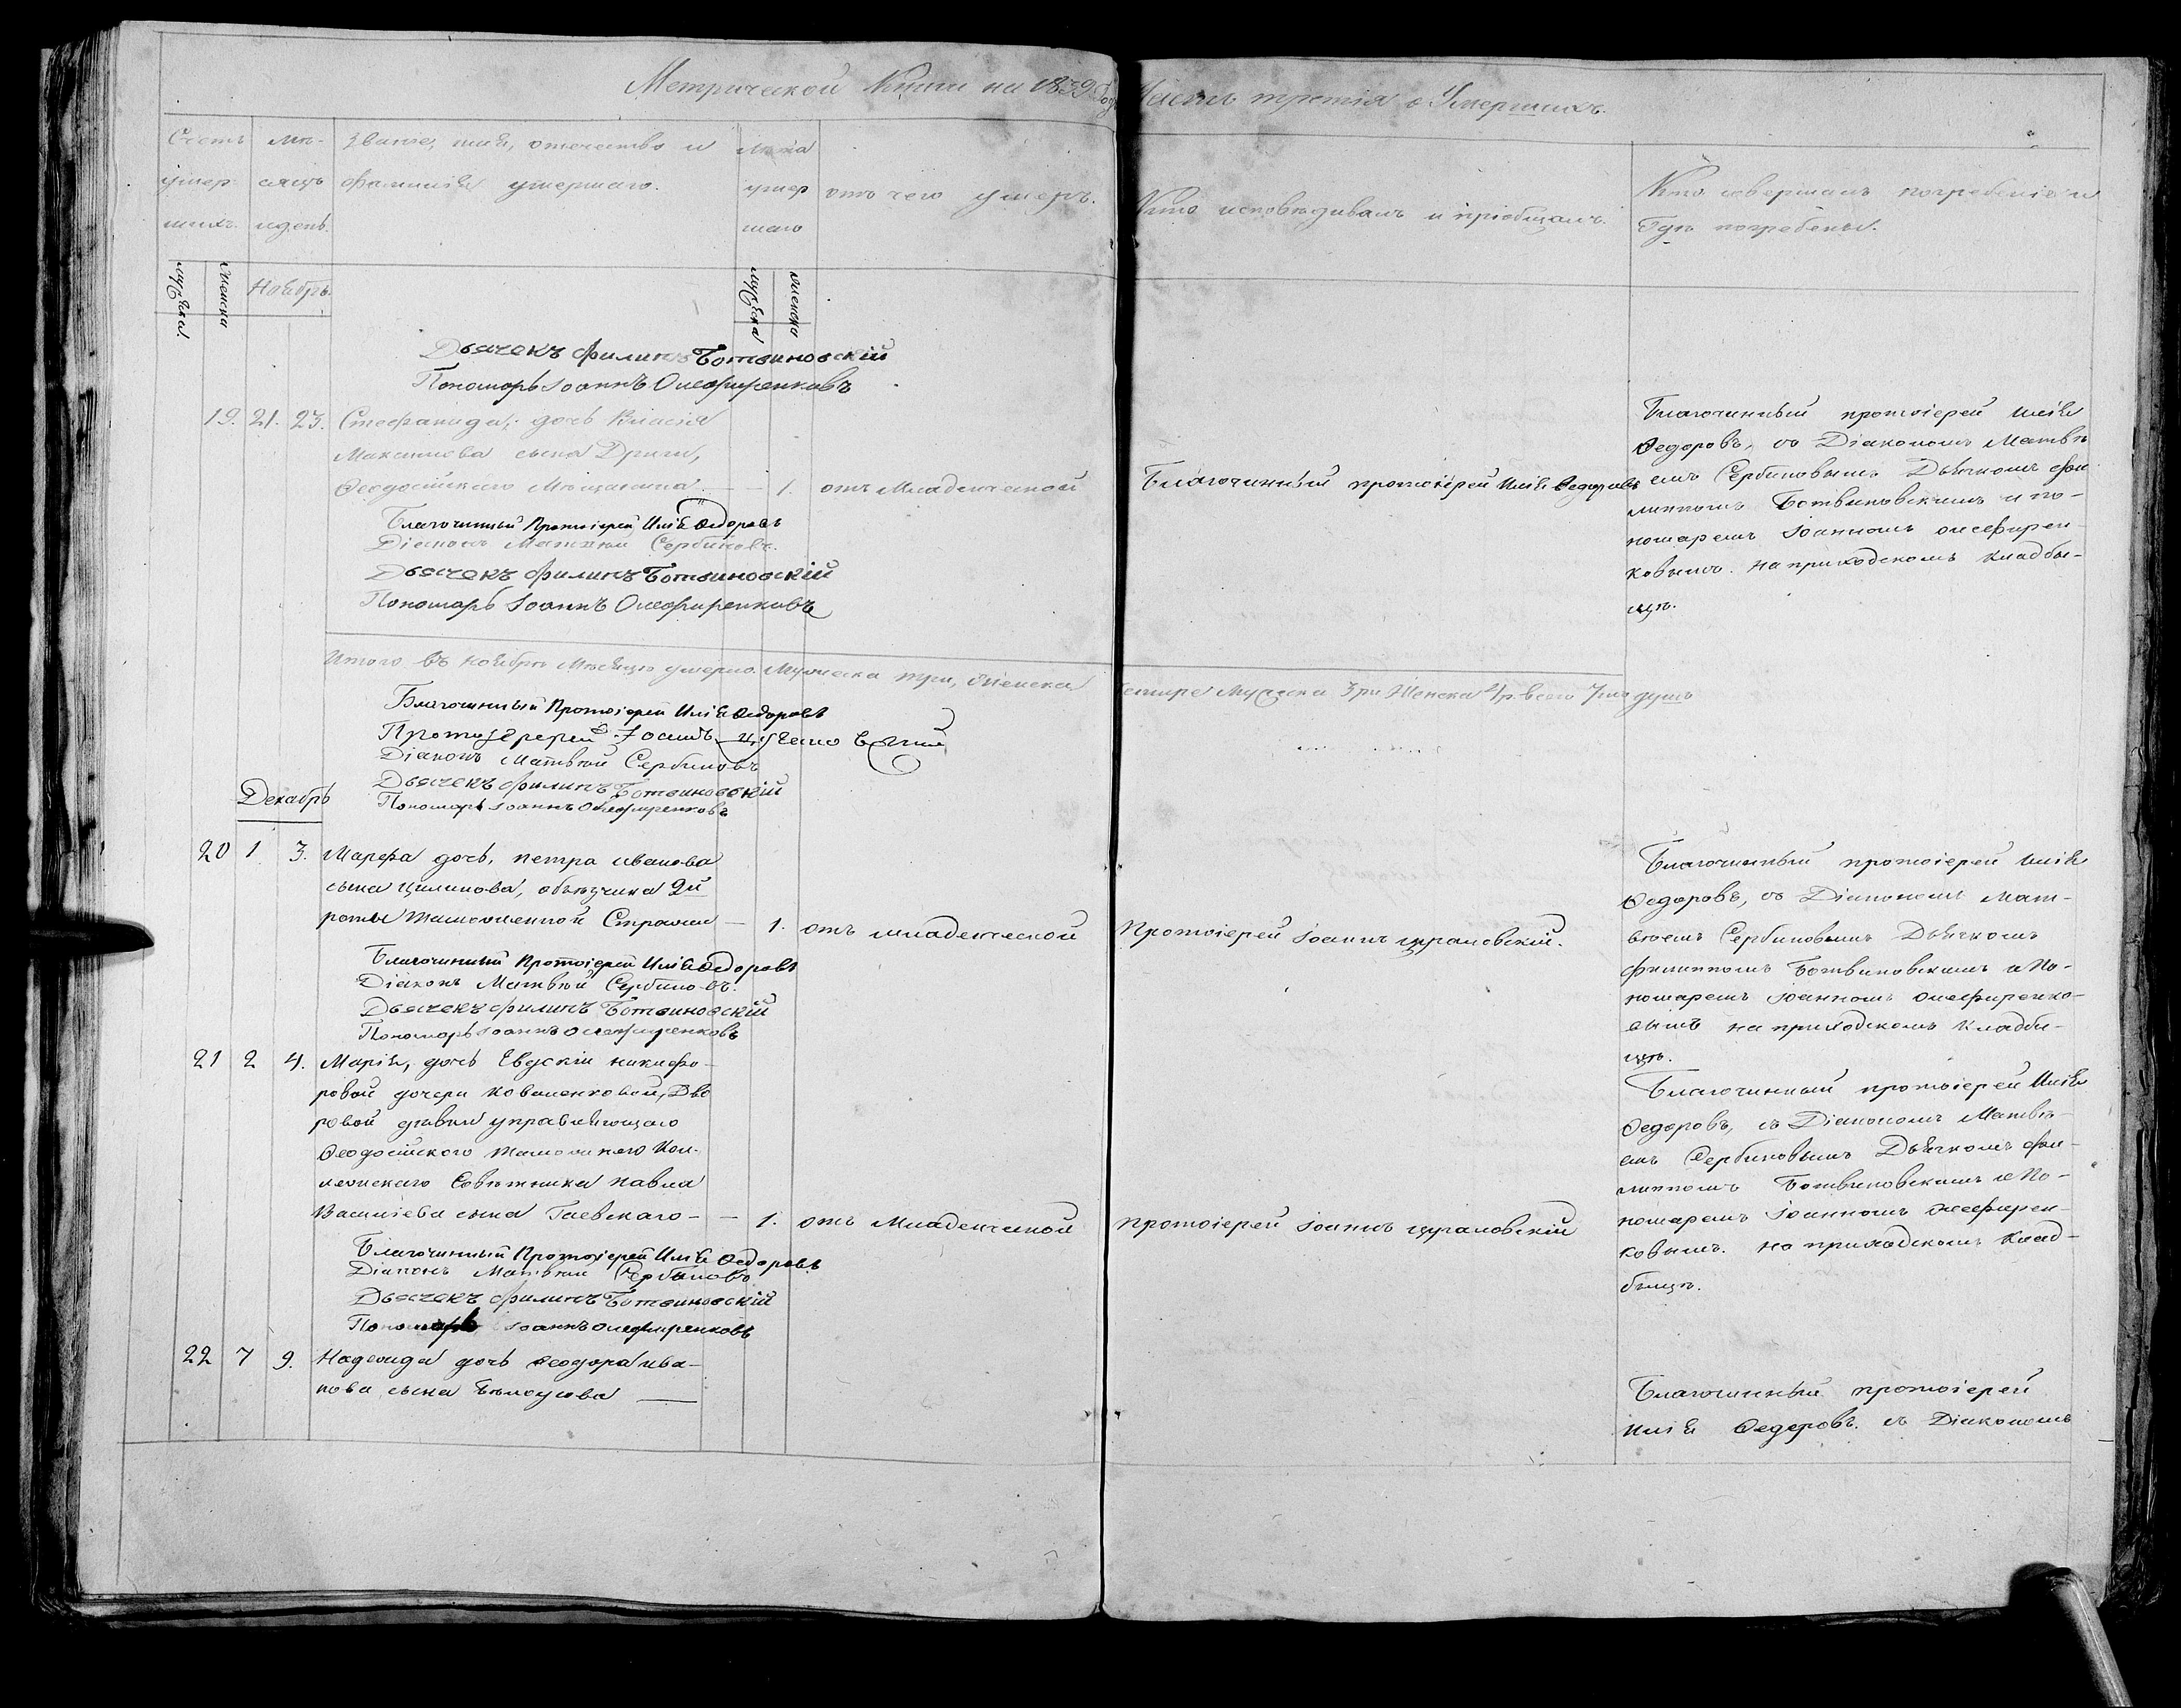 Метрической Книги на 1839 Годъ Часть третія о Умершихъ.
Счетъ умершихъ.
мужеска.
женска
мѣсяцъ и день.
Званіе, имя, отечество и
фамилія умершаго.
Лѣта умершаго
мужеска
женска
отъ чего умеръ.
Кто исповѣдивалъ и пріобщалъ.
Кто совершалъ погребеніе и
гдѣ погребены.
Ноябрь.
Дьячекъ Филипъ Ботвиновскій
Пономарь Іоаннъ Олефиренковъ
19. 21. 23. Стефанида, дочь Власія
Максимова сына Дриги,
Ѳеодосійскаго Мѣщанина — 1. отъ Младенческой
Благочинный протоіерей Илія Ѳедоровъ
Благочинный протоіерей Илія
Ѳедоровъ, съ Діакономъ Матвѣ
емъ Сербиновымъ Дьячкомъ Фи
липпомъ Ботвиновскимъ и по-
номаремъ Іоанномъ Олефирен
ковымъ. на приходскомъ кладби-
щѣ.
Благочинный Протоіерей Илія Ѳедоровъ
Діаконъ Матвей Сербиновъ.
Дьячекъ Филипъ Ботвиновскій
Пономарь Іоаннъ Олефиренковъ
Итого въ ноябрѣ Мѣсяцѣ умерло. Мужеска три, Женска
четыре Мужеска 3ри Женска 4/р. всего 7мь душъ
Благочинный Протоіерей Илія Ѳедоровъ
Протоіерей Іоаннъ
Діаконъ Матвей Сербиновъ
Дьячекъ Филипъ Ботвиновскій
Пономарь Іоаннъ Олефиренковъ
Декабрь
20 1 3. Марѳа дочь, петра иванова
сына Цилинова, объездчика 2й
роты Таможенной Стражи — 1. отъ младенческой
Протоіерей Іоаннъ Цраловскій.
Благочинный протоіерей Илія
Ѳедоровъ, съ Діакономъ Мат-
вѣемъ Сербиновымъ Дьячкомъ
Филиппомъ Ботвиновскимъ и По-
номаремъ Іоанномъ Олефиренко-
вымъ на приходскомъ кладби-
щѣ.
Благочинный Протоіерей Илія Ѳедоровъ
Діаконъ Матвей Сербиновъ.
Дьячекъ Филипъ Ботвиновскій
Пономарь Іоаннъ Олефиренковъ
21 2 4. Марія, дочь Евдокіи никифо-
ровой дочери Коваленковой, Дво
ровой дѣвки управляющаго
Ѳеодосійскою таможнею Кол-
лежскаго Совѣтника павла
Васильева сына Гаевскаго — 1. отъ Младенческой
протоіерей Іоаннъ Цраловскій
Благочинный протоіерей Илія
Ѳедоровъ, съ Діакономъ Матвѣ-
емъ Сербиновымъ Дьячкомъ Фи-
липпомъ Ботвиновскимъ и По-
номаремъ Іоанномъ Олефирен-
ковымъ. на приходскомъ клад-
бищѣ.
Благочинный Протоіерей Илія Ѳедоровъ
Діаконъ Матвей Сербиновъ
Дьячекъ Филипъ Ботвиновскій
Пономарь Іоаннъ Олефиренковъ
22 7 9. Надежда дочь Ѳеодора ива-
нова сына Бѣлоусова —
Благочинный протоіерей
Илія Ѳедоровъ. съ Діакономъ